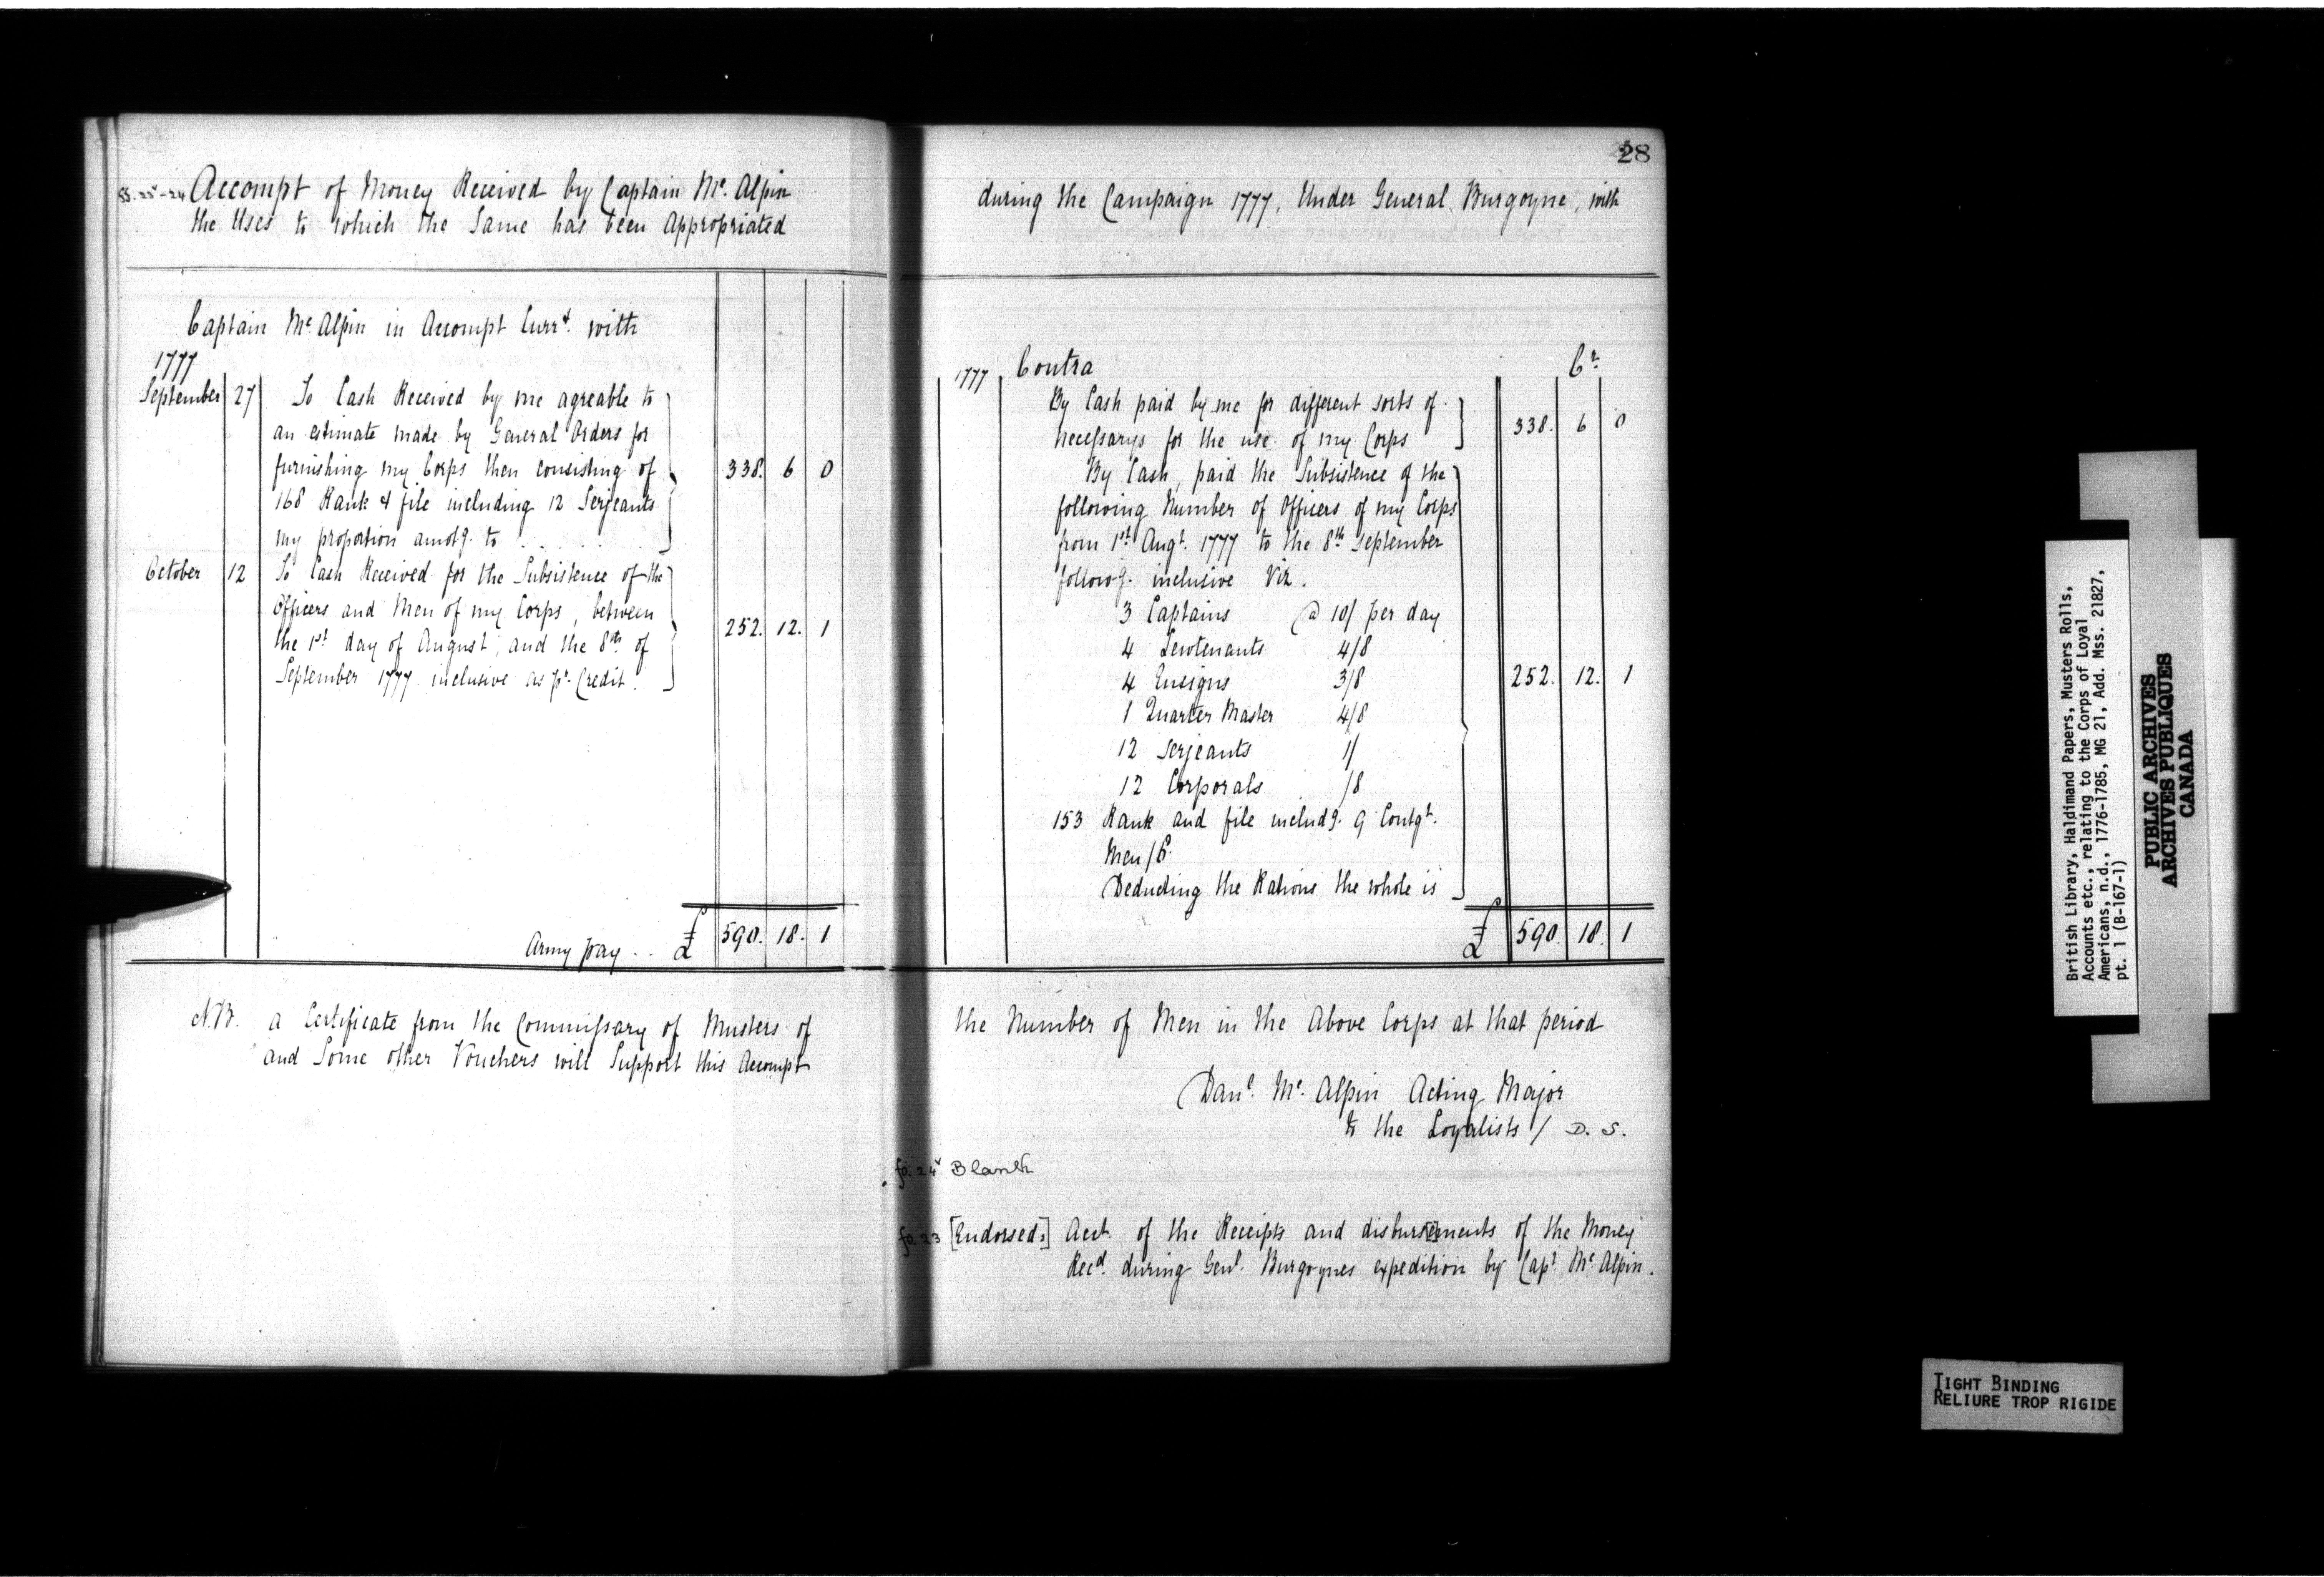 28
ss. 25v-24 Accompt of Money Received by Captain Mc. Alpin
the Uses to which the Same has been Appropriated
during the Campaign 1777, Under General Burgoyne, with
Captain Mc. Alpin in Accompt Currt. with
1777
September 27 To Cash Received by me agreable to
an estimate made by General Orders for
furnishing my Corps then consisting of 338. 6 0
168 Rank & file including 12 Serjeants
my proportion amotg. to . . . . .
October 12 To Cash Received for the Subsistence of the
Officers and Men of my Corps, between
the 1st day of August, and the 8th of 252. 12. 1
September 1777 inclusive as pr. Credit.
Army pay . . £ 590. 18. 1
1777 Contra Cr.
By Cash paid by me for different sorts of
necessarys for the use of my Corps 338. 6 0
By Cash, paid the Subsistence of the
following Number of Officers of my Corps
from 1st Augt. 1777 to the 8th September
followg. inclusive Viz.
3 Captains @ 10/ per day
4 Lieutenants 4/8
4 Ensigns 3/8 252. 12. 1
1 Quarter Master 4/8
12 Serjeants 1/
12 Corporals /8
153 Rank and file includg. 9 Contgt.
Men /6.
Deducting the Rations the whole is
£ 590. 18. 1
N.B. a Certificate from the Commissary of Musters of
and Some other Vouchers will Support this Accompt
the Number of Men in the Above Corps at that period
Danl. Mc. Alpin Acting Major
to the Loyalists / D. S.
fo. 24v Blank
fo. 23 [Endorsed:] Acct. of the Receipts and disburs[e]ments of the Money
Recd. during Genl. Burgoynes expedition by Capt. Mc. Alpin.
British Library, Haldimand Papers, Musters Rolls,
Accounts etc., relating to the Corps of Loyal
Americans, n.d., 1776-1785, MG 21, Add. Mss. 21827,
pt. 1 (B-167-1)
PUBLIC ARCHIVES
ARCHIVES PUBLIQUES
CANADA
TIGHT BINDING
RELIURE TROP RIGIDE